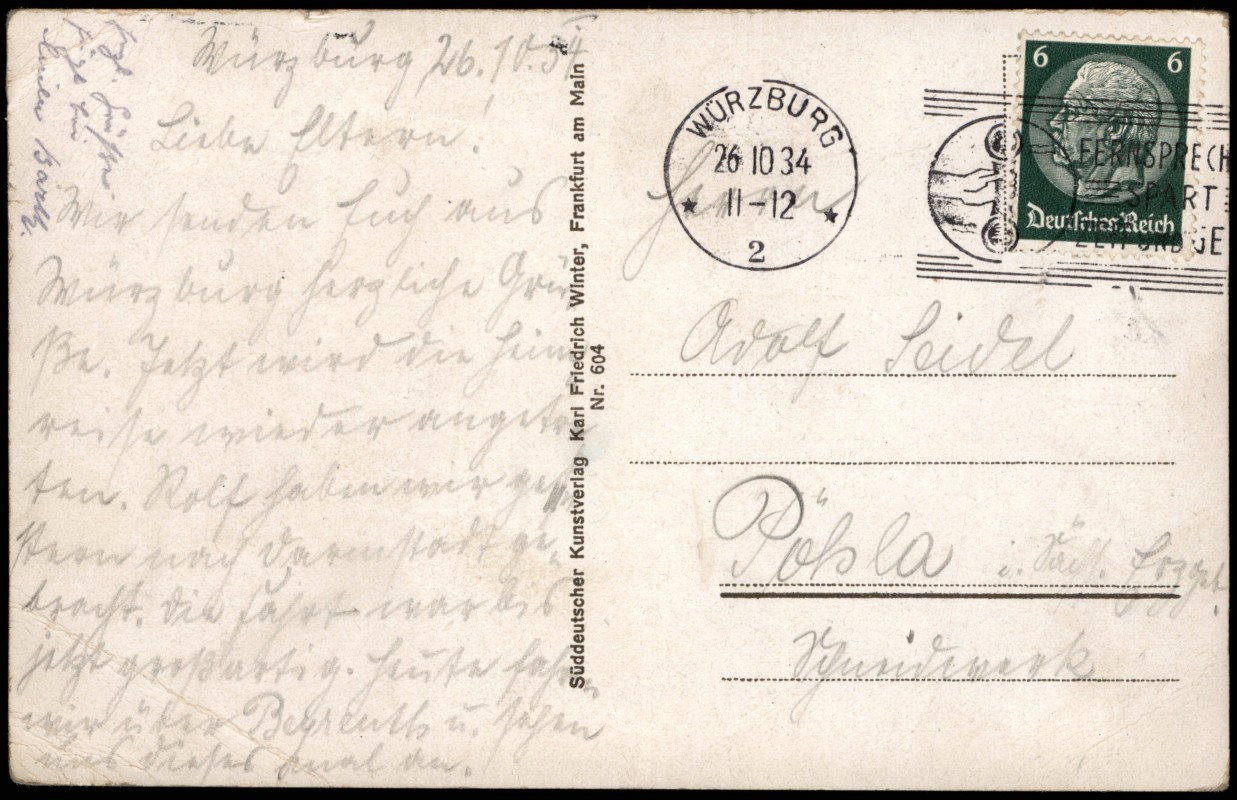 Würzburg 26.10.34
Liebe Eltern!
Wir senden Euch aus
Würzburg herzliche Grü-
ße. Jetzt wird die Heim-
reise wieder angetre-
ten. Rolf haben wir ge-
stern nach Darmstadt ge-
bracht. Die Fahrt war bis
jetzt großartig. Heute fahren
wir über Beyreuth u. sehen
uns dieses mal an.
Süddeutscher Kunstverlag Karl Friedrich Winter, Frankfurt am Main
Nr. 604
WÜRZBURG
26 10 34
11-12
2
6 6
Deutsches Reich
FERNSPRECH
SPART
ZEIT UND GE
Herrn
Adolf Seidel
Pöhla i. Sächs. Erzgeb.
Schneidwerk